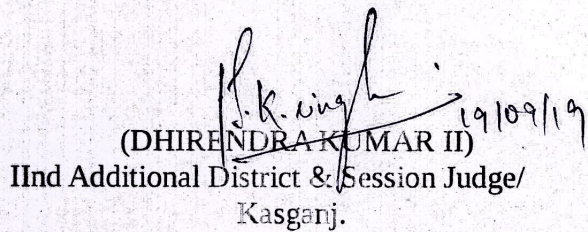 D.K. Singh
19/09/19
(DHIRENDRA KUMAR II)
IInd Additional District & Session Judge/
Kasganj.